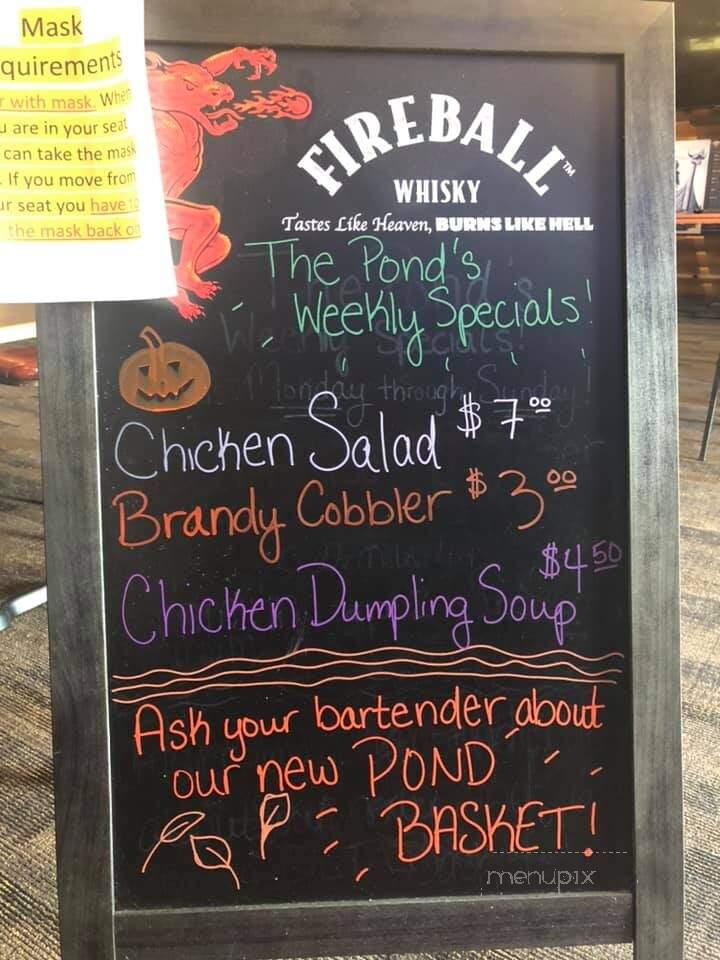 Mask
quirements
with mask. When
u are in your seat
can take the mask
. If you move from
ur seat you have to
the mask back on
FIREBALL™
WHISKY
Tastes Like Heaven, BURNS LIKE HELL
The Pond's
Weekly Specials!
Monday through Sunday!
Chicken Salad $7.00
Brandy Cobbler $3.00
$4.50
Chicken Dumpling Soup
Ask your bartender about
our new POND
BASKET!
menupix